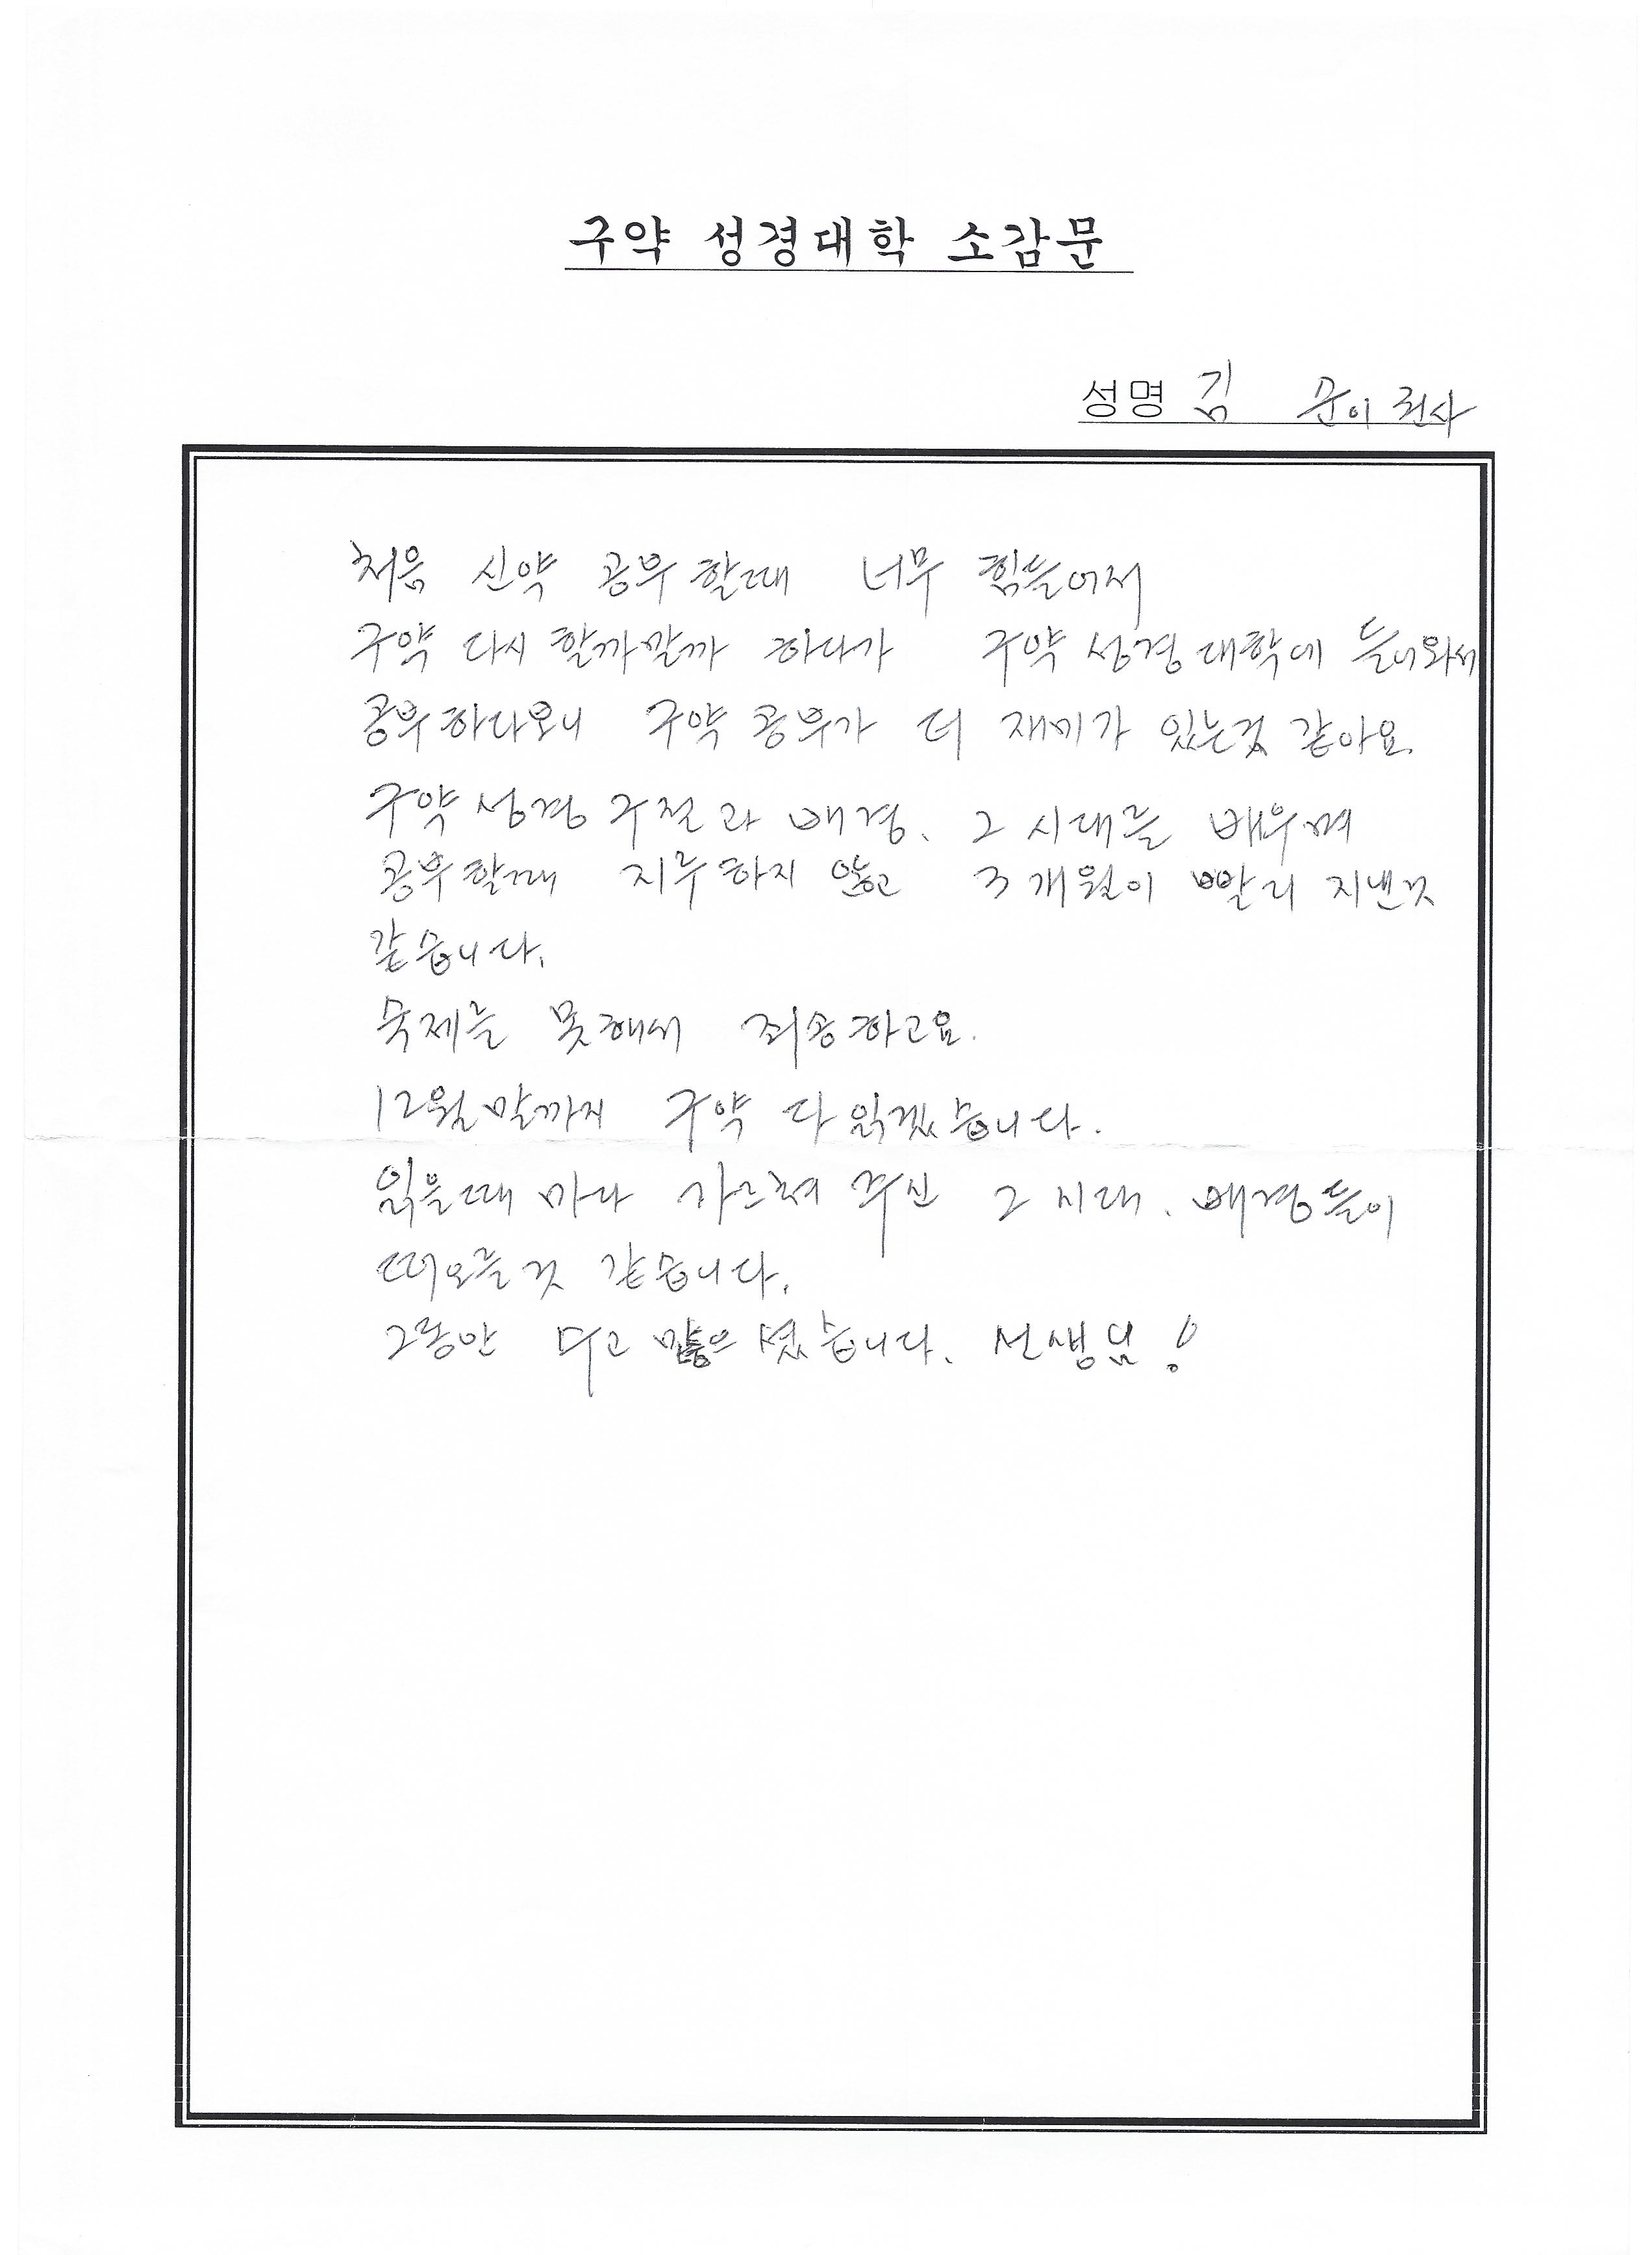 구약 성경대학 소감문
성명 김 순이 권사
처음 신약 공부 할때 너무 힘들어서
구약 다시 할까말까 하다가 구약 성경대학에 들어와서
공부하다보니 구약 공부가 더 재미가 있는것 같아요.
구약 성경 구절과 배경, 그 시대를 배우며
공부할때 지루하지 않고 3개월이 빨리 지낸것
같습니다.
숙제를 못해서 죄송하고요.
12월말까지 구약 다 읽겠습니다.
읽을때 마다 가르쳐 주신 그 시대, 배경들이
떠오를것 같습니다.
그동안 수고 많으셨습니다. 선생님!